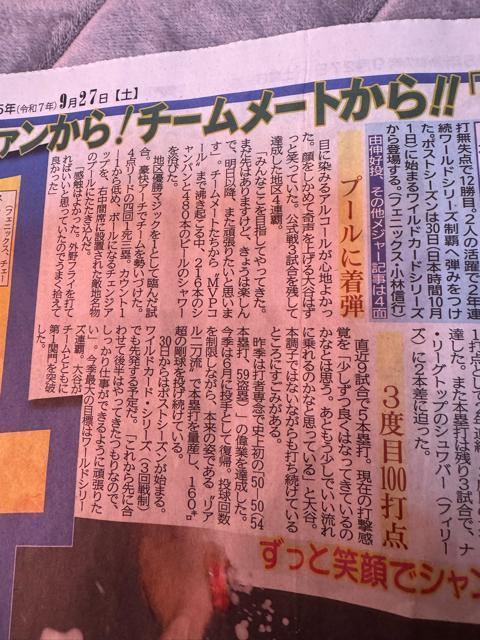 5年(令和7年)9月27日【土】
ァンから!チームメートから!!
打無失点で12勝目。2人の活躍で2年連
続ワールドシリーズ制覇へ弾みをつけ
た。ポストシーズンは30日(日本時間10月
1日)に始まるワイルドカードシリーズ
から登場する。(フェニックス・小林信行)
由伸好投、その他メジャー記事は4面
プールに着弾
目に染みるアルコールが心地よかっ
た。顔をしかめて奇声を上げる大谷はず
っと笑っていた。公式戦3試合を残して
達成した地区4連覇。
「みんなここを目指してやってきた。
まだ先はありますけど、きょうは楽しん
で、明日以降、また頑張りたいと思いま
す」。チームメートたちから「MVPコ
ール」まで沸き起こる中、216本のシ
ャンパンと480本のビールのシャワー
を浴びた。
地区優勝マジックを1として臨んだ試
合。豪快アーチでチームを勢いづけた。
4点リードの四回1死三塁。カウント1
―1から低め、ボールになるチェンジア
ップを、右中間席に設置された敵地名物
のプールにたたき込んだ。
「感触はよかった。外野フライを打
ればいいと思っていたのでうまく拾えて
良かった」
達した。また本塁打は残り3試合で、ナ
・リーグトップのシュワバー(フィリー
ズ)に2本差に迫った。
3度目100打点
直近9試合で5本塁打。現在の打撃感
覚を「少しずつ良くはなってきているの
かなとは思う。あともう少しでいい流れ
に乗れるのかなと思っている」と大谷。
本調子ではないながらも打ち続けている
ところにすごみがある。
昨季は打者専念で史上初の「50―50(54
本塁打、59盗塁)」の偉業を達成した。
今季は6月に投手として復帰。投球回数
を制限しながら、本来の姿である「リア
ル二刀流」で本塁打を量産し、160㌔
超の剛球を投げ続けている。
30日からはポストシーズンが始まる。
ワイルドカード・シリーズ(3回戦制)
でも先発する予定だ。「これから先に合
わせて後半はやってきたつもりなので、
しっかり仕事ができるように頑張りた
い」。今季最大の目標はワールドシリー
ズ連覇。大谷が
チームとともに
第1関門を突破
した。
ずっと笑顔でシャン